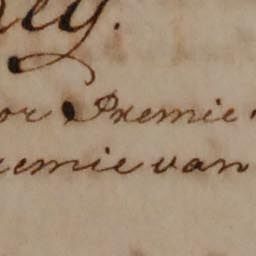 or Premie
remie van